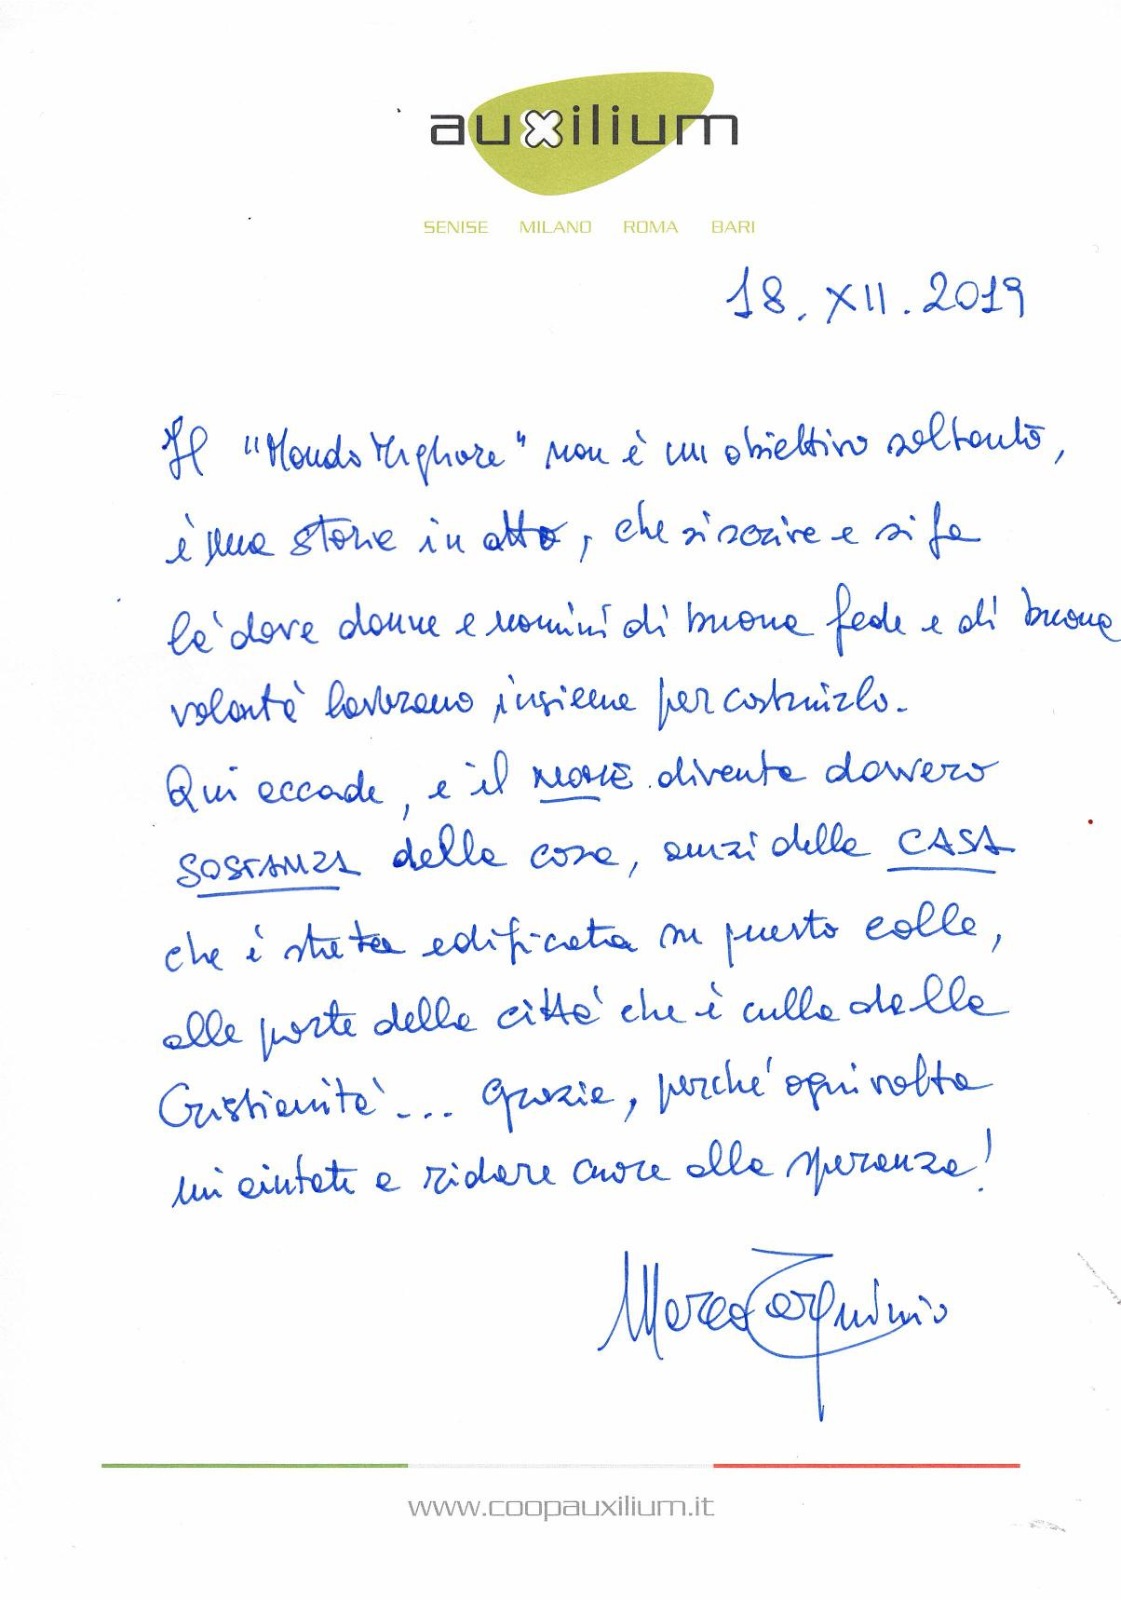 auxilium
SENISE MILANO ROMA BARI
18. XII. 2019
Il "Mondo Migliore" non è un obiettivo soltanto,
è una storia in atto, che si scrive e si fa
là dove donne e uomini di buona fede e di buona
volontà lavorano insieme per costruirlo.
Qui accade, e il NOME diventa davvero
SOSTANZA della cosa, anzi della CASA
che è stata edificata su questo colle,
alle porte della città che è culla della
Cristianità... Grazie, perché ogni volta
mi aiutate a ridare cuore alla speranza!
Marco Tarquinio
www.coopauxilium.it